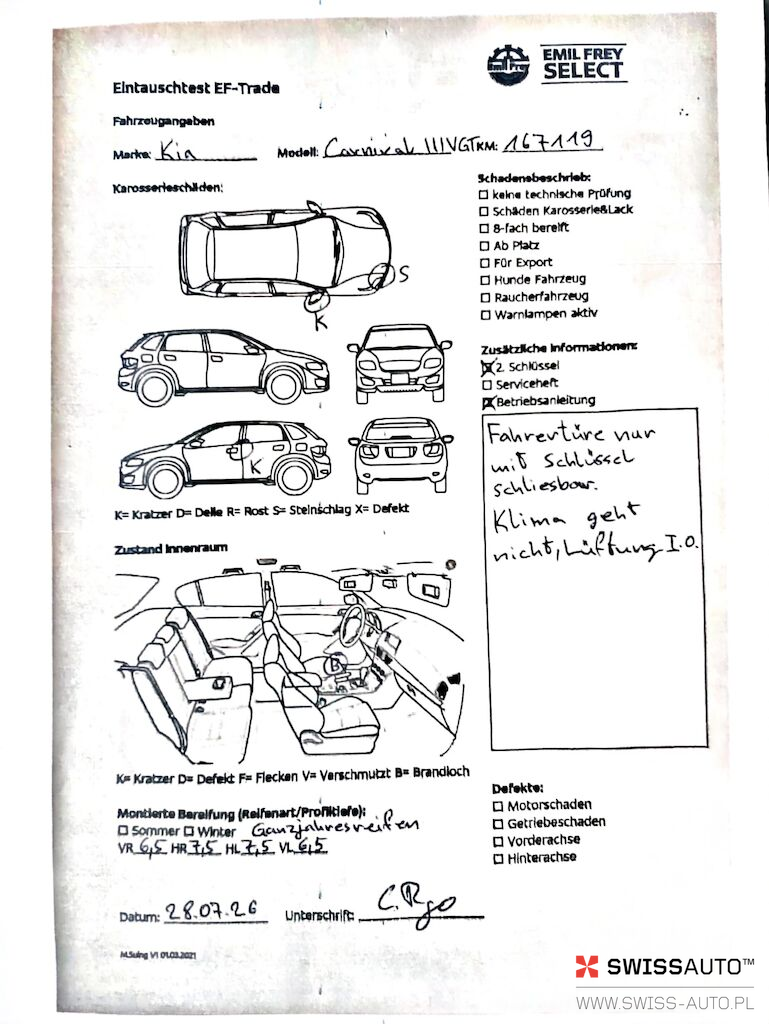 Emil Frey
EMIL FREY
SELECT
Eintauschtest EF-Trade
Fahrzeugangaben
Marke: Kia Modell: Carnival III VGT KM: 167119
Karosserieschäden:
S
K
K
K= Kratzer D= Delle R= Rost S= Steinschlag X= Defekt
Schadensbeschrieb:
keine technische Prüfung
Schäden Karosserie&Lack
8-fach bereift
Ab Platz
Für Export
Hunde Fahrzeug
Raucherfahrzeug
Warnlampen aktiv
Zusätzliche Informationen:
2. Schlüssel
Serviceheft
Betriebsanleitung
Fahrertüre nur
mit Schlüssel
schliesbar.
Klima geht
nicht, Lüftung I.O.
Zustand Innenraum
B
K= Kratzer D= Defekt F= Flecken V= Verschmutzt B= Brandloch
Montierte Bereifung (Reifenart/Profiltiefe):
Sommer Winter Ganzjahresreifen
VR 6,5 HR 7,5 HL 7,5 VL 6,5
Defekte:
Motorschaden
Getriebeschaden
Vorderachse
Hinterachse
Datum: 28.07.26 Unterschrift:
M.Suing V1 01.03.2021
SWISSAUTO™
WWW.SWISS-AUTO.PL